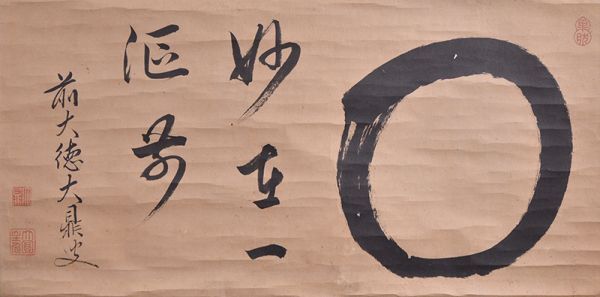 妙在一
漚前
前大徳大鼎叟